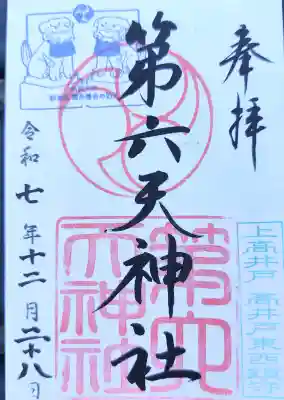 奉拝
上高井戸 高井戸東西鎮守
第六天神社
第六天神社
令和七年十二月二十八日